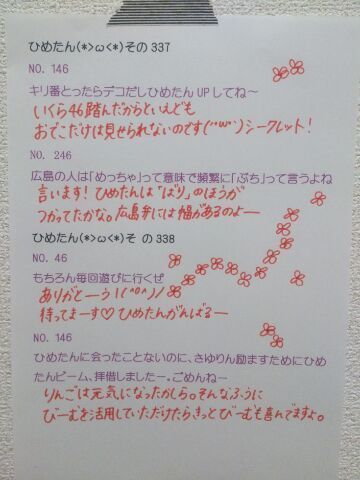 ひめたん(*>ω<*)その337
NO. 146
キリ番とったらデコだしひめたんUPしてね～
いくら46踏んだからといえども
おでこだけは見せられないのです(´▽｀)シークレット!
NO. 246
広島の人は「めっちゃ」って意味で頻繁に「ぶち」って言うよね
言います!ひめたんは「ばり」のほうが
つかってたかな。広島弁には幅があるのよー
ひめたん(*>ω<*)そ の338
NO. 46
もちろん毎回遊びに行くぜ
ありがとーう!(^o^)ノ
待ってまーす♡ひめたんがんばるー
NO. 146
ひめたんに会ったことないのに、さゆりん励ますためにひめ
たんビーム、拝借しましたー。ごめんねー
りんごは元気になったかしら。そんなふうに
びーむを活用していただけたらきっとびーむも喜んでますよ。